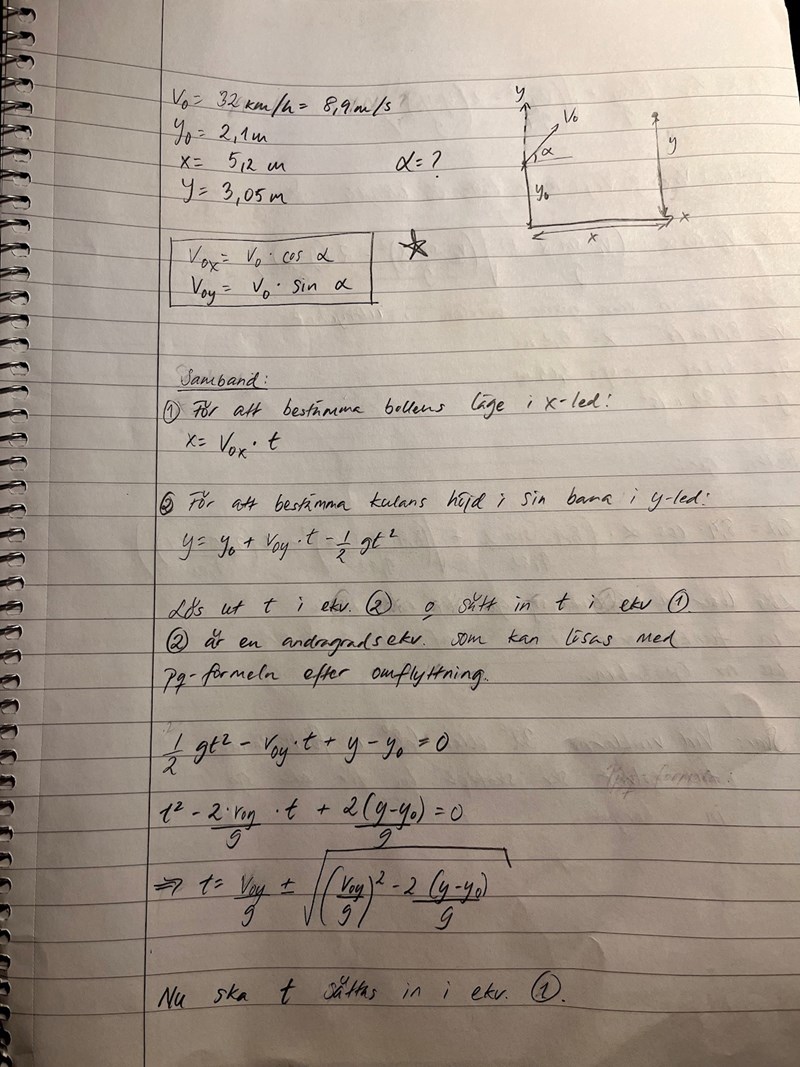 V₀ = 32 km/h = 8,9 m/s
y₀ = 2,1 m
x = 5,2 m
α = ?
y = 3,05 m
y
V₀
α
y₀
y
x
x
V₀ₓ = V₀ · cos α
V₀y = V₀ · sin α
Samband:
① För att bestämma bollens läge i x-led:
x = V₀ₓ · t
② För att bestämma kulans höjd i sin bana i y-led:
y = y₀ + V₀y · t - 1/2 gt²
Lös ut t i ekv. ② o sätt in t i ekv ①.
② är en andragradsekv. som kan lösas med
pq-formeln efter omflyttning.
1/2 gt² - V₀y · t + y - y₀ = 0
t² - 2·V₀y/g · t + 2(y-y₀)/g = 0
⇒ t = V₀y/g ± √((V₀y/g)² - 2 (y-y₀)/g)
Nu ska t sättas in i ekv. ①.